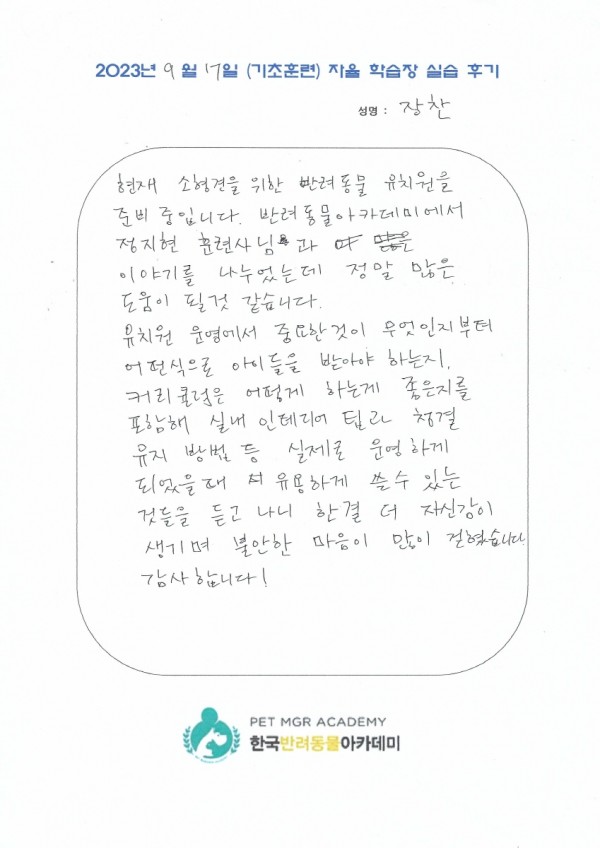 2023년 9월 17일 (기초훈련) 자율 학습장 실습 후기
성명 : 장찬
현재 소형견을 위한 반려동물 유치원을
준비 중입니다. 반려동물아카데미에서
정지현 훈련사님과 많은
이야기를 나누었는데 정말 많은
도움이 될것 같습니다.
유치원 운영에서 중요한것이 무엇인지부터
어떤식으로 아이들을 받아야 하는지,
커리큘럼은 어떻게 하는게 좋은지를
포함해 실내 인테리어 팁과 청결
유지 방법 등 실제로 운영하게
되었을때 유용하게 쓸수 있는
것들을 듣고 나니 한결 더 자신감이
생기며 불안한 마음이 많이 걷혔습니다.
감사합니다!
PET MGR ACADEMY
한국반려동물아카데미